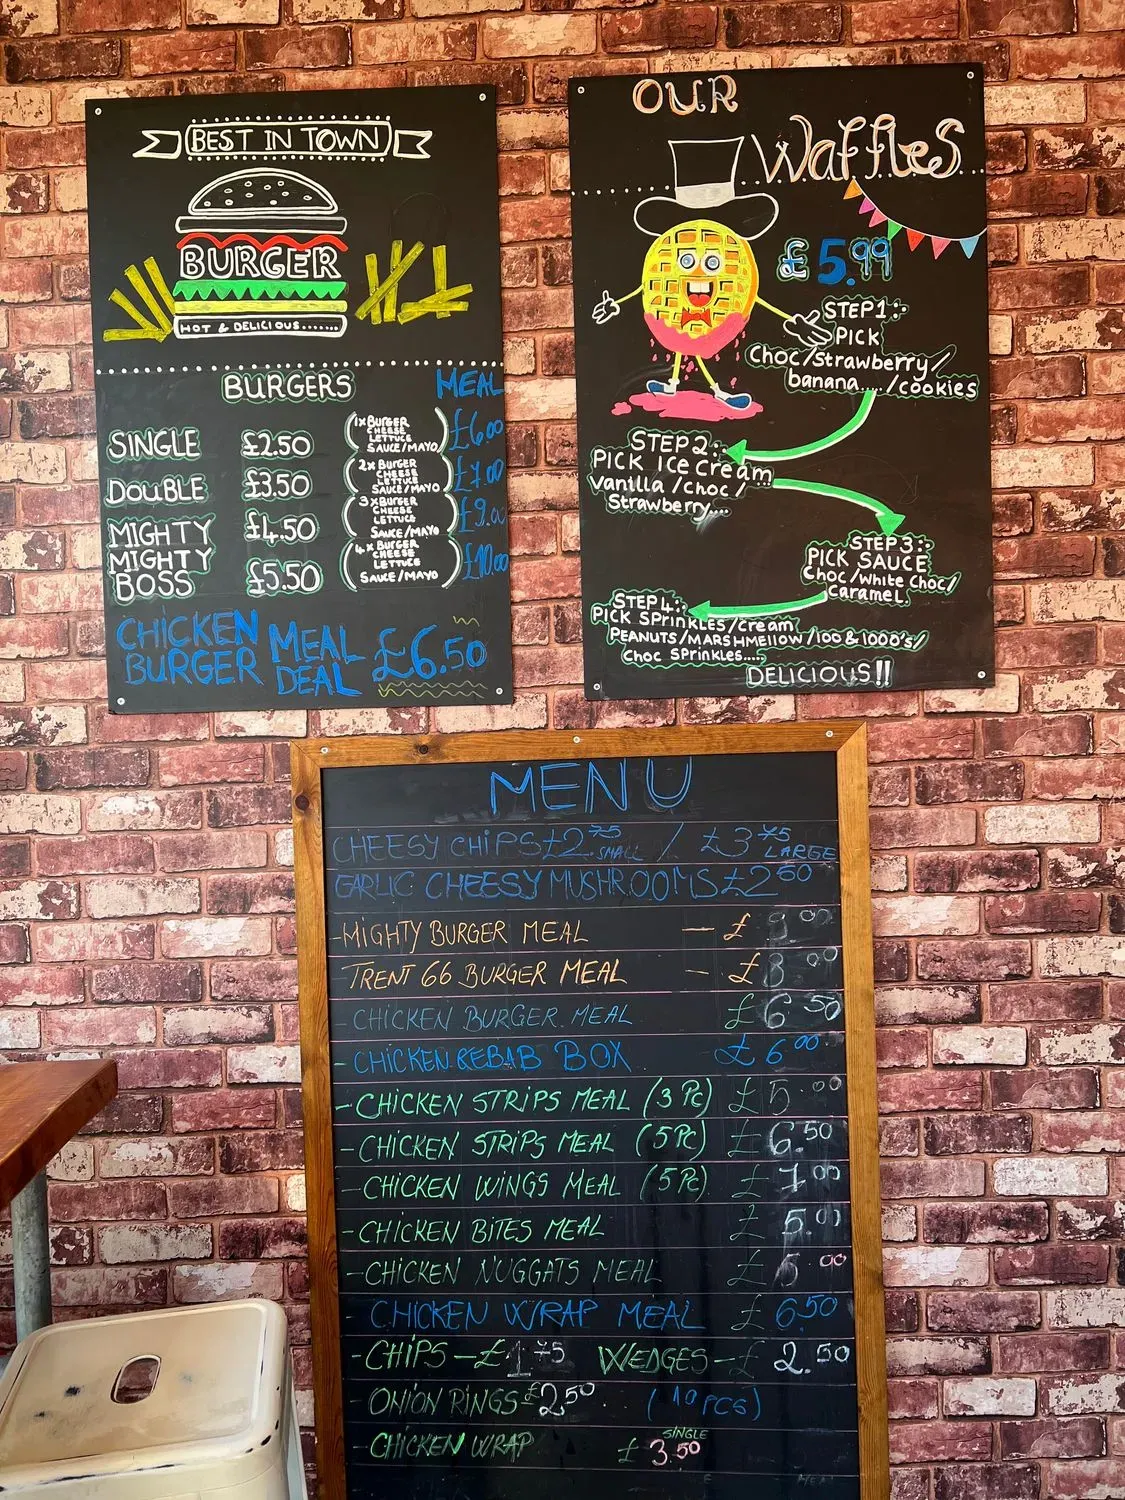 BEST IN TOWN
BURGER
HOT & DELICIOUS.......
BURGERS MEAL
SINGLE £2.50 1x BURGER CHEESE LETTUCE SAUCE/MAYO £6.00
DOUBLE £3.50 2x BURGER CHEESE LETTUCE SAUCE/MAYO £7.00
MIGHTY £4.50 3xBURGER CHEESE LETTUCE SAUCE/MAYO £9.00
MIGHTY BOSS £5.50 4x BURGER CHEESE LETTUCE SAUCE/MAYO £10.00
CHICKEN BURGER MEAL DEAL £6.50
OUR
Waffles
£5.99
STEP1:-
PICK
Choc/strawberry/
banana..../cookies
STEP2:-
PICK Ice Cream
Vanilla/choc/
Strawberry....
STEP3:-
PICK SAUCE
Choc/White Choc/
Caramel.
STEP4:-
PICK SPrinkLES/Cream
PEANUTS/MARSHMEllow/100 & 1000's/
Choc SPrinkles.....
DELICIOUS!!
MENU
CHEESY CHIPS £2.75 SMALL / £3.75 LARGE
GARLIC CHEESY MUSHROOMS £2.50
-MIGHTY BURGER MEAL — £ 9.00
TRENT 66 BURGER MEAL - £8.00
-CHICKEN BURGER MEAL £6.50
-CHICKEN KEBAB BOX £6.00
-CHICKEN STRIPS MEAL (3 Pc) £5.00
-CHICKEN STRIPS MEAL (5 Pc) £6.50
-CHICKEN WINGS MEAL (5 Pc) £7.00
-CHICKEN BITES MEAL £5.00
-CHICKEN NUGGATS MEAL £5.00
CHICKEN WRAP MEAL £6.50
-CHIPS-£1.75 WEDGES-£2.50
-ONION RINGS £2.50 (10 PCS)
-CHICKEN WRAP SINGLE £3.50